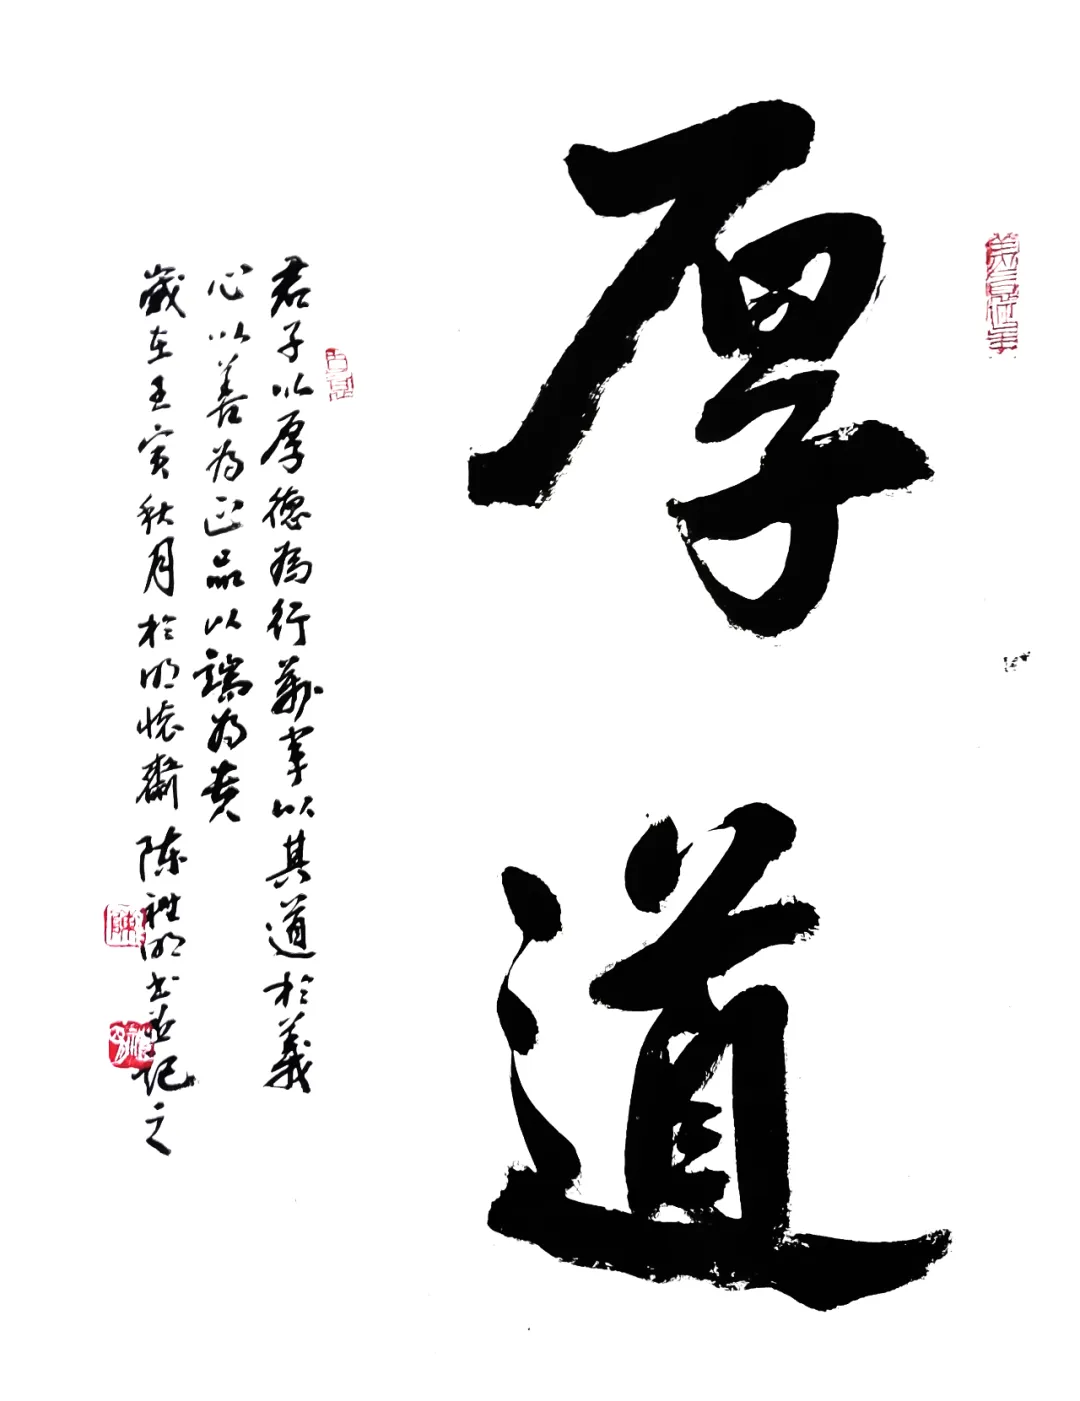 厚道
君子以厚德為行萬事以其道於義
心以善為正品以端為贵
歲在壬寅秋月於明懷齋陈祉明书並记之